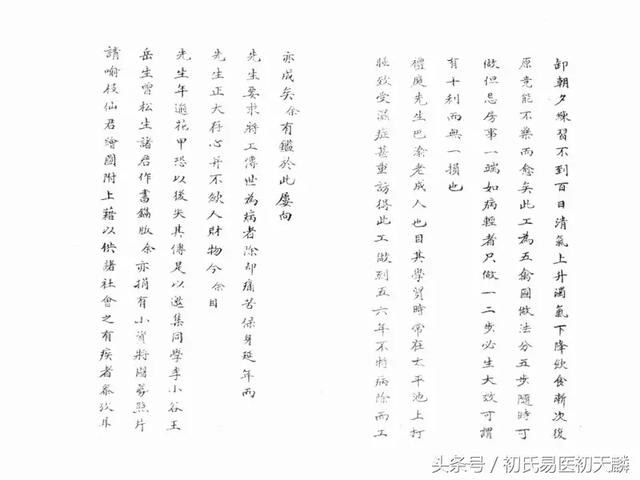 卸朝夕練習不到百日清氣上升濁氣下降飲食漸次復
原竟能不藥而愈矣此工為五禽圖做法分五步隨時可
做但忌房事一端如病輕者只做一二步必生大效可謂
有十利而無一損也
禮庭先生巴渝老成人也自其學質時常在太平池上打
睡致受濕症甚重訪得此工做到五六年不特病除而工
亦成矣余有鑑於此屢向
先生要求將工傳世為病者除却痛苦保身延年而
先生正大存心并不欲人財物今余目
先生年逾花甲恐以後失其傳是以邀集同學李小谷王
岳生曾松生諸君作書鐫版余亦捐有小資將閣參照片
請喻枝仙君繪圖附上藉以供諸社會之有疾者參攷耳
头条号／初氏易医初天麟